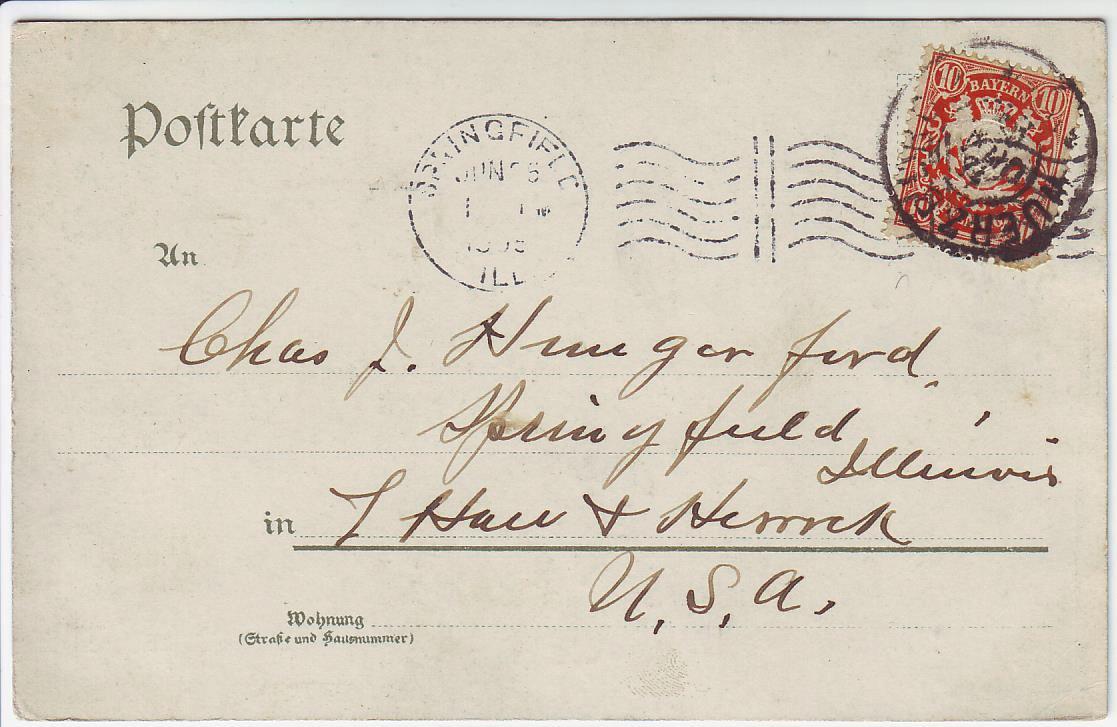 Postkarte
SPRINGFIELD
JUN
ILL
10 BAYERN 10
An
Chas J. Hungerford,
Springfield,
Illinois
in
Hall & Herrick
U.S.A.
Wohnung
(Straße und Hausnummer)